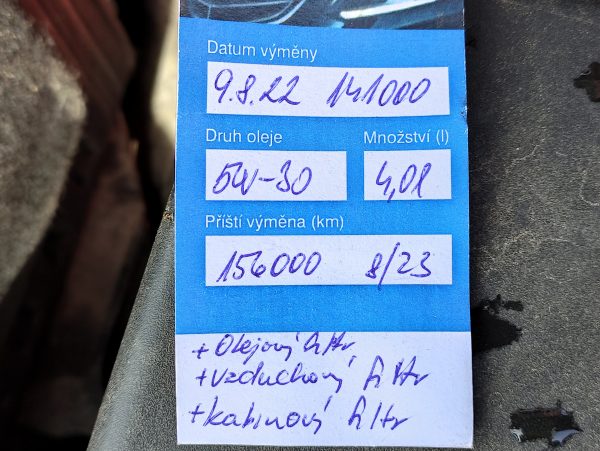 Datum výměny
9.8.22 141000
Druh oleje Množství (l)
5W-30 4,0l
Příští výměna (km)
156000 8/23
+ Olejový filtr
+ vzduchový filtr
+ kabinový filtr